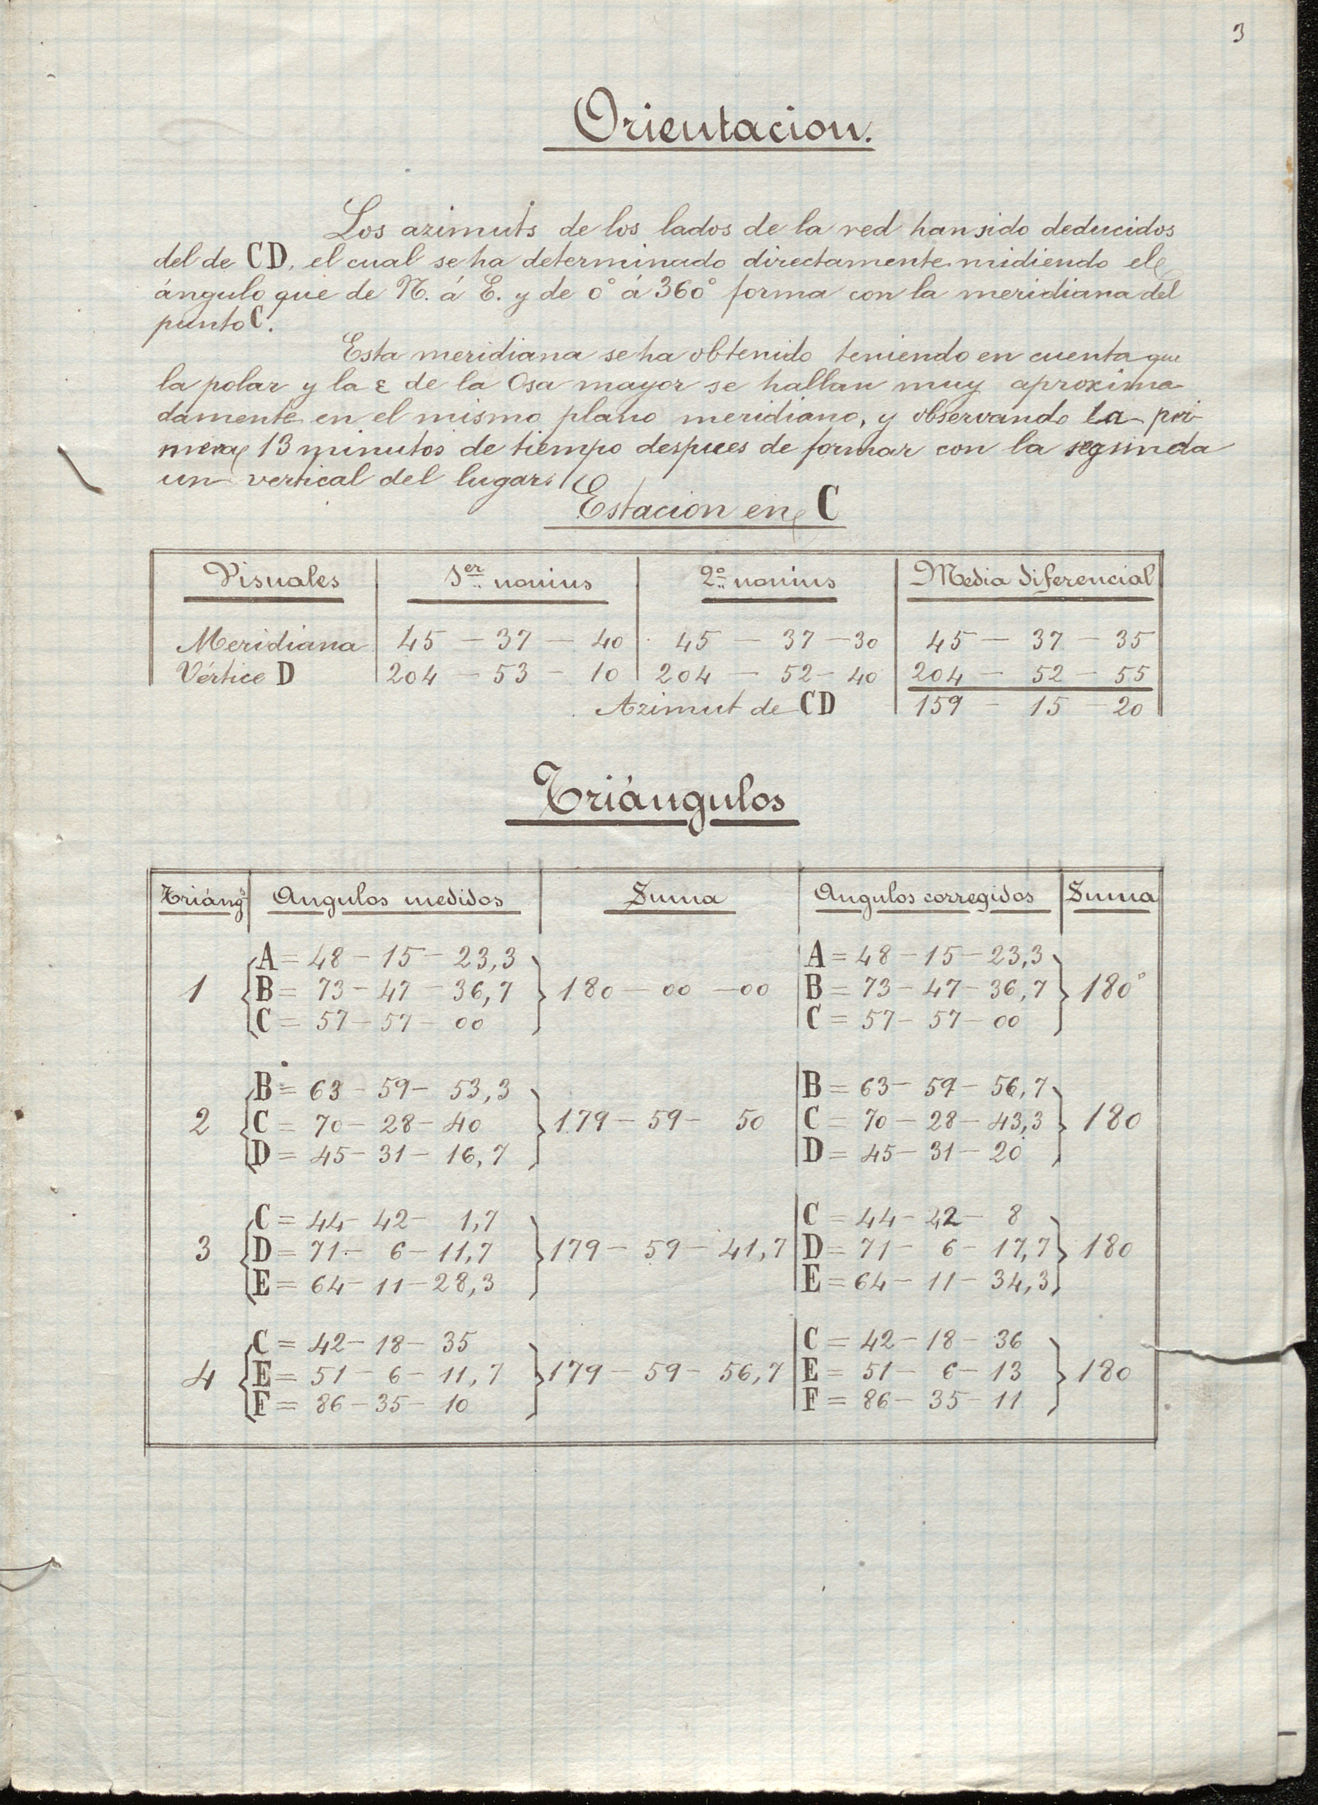 3
Orientacion.
Los azimuts de los lados de la red han sido deducidos
del de CD, el cual se ha determinado directamente midiendo el
ángulo que de N. á E. y de 0° á 360° forma con la meridiana del
punto C.
Esta meridiana se ha obtenido teniendo en cuenta que
la polar y la ε de la Osa mayor se hallan muy aproxima-
damente en el mismo plano meridiano, y observando la pri-
mera, 13 minutos de tiempo despues de formar con la segunda
un vertical del lugar.
Estacion en C
Visuales 1er nonius 2o nonius Media diferencial
Meridiana 45 - 37 - 40 45 - 37 - 30 45 - 37 - 35
Vértice D 204 - 53 - 10 204 - 52 - 40 204 - 52 - 55
Azimut de CD 159 - 15 - 20
Triángulos
Triáng.s Angulos medidos Suma Angulos corregidos Suma
A = 48 - 15 - 23,3 A = 48 - 15 - 23,3
1 B = 73 - 47 - 36,7 180 - 00 - 00 B = 73 - 47 - 36,7 180°
C = 57 - 57 - 00 C = 57 - 57 - 00
B = 63 - 59 - 53,3 B = 63 - 59 - 56,7
2 C = 70 - 28 - 40 179 - 59 - 50 C = 70 - 28 - 43,3 180
D = 45 - 31 - 16,7 D = 45 - 31 - 20
C = 44 - 42 - 1,7 C = 44 - 42 - 8
3 D = 71 - 6 - 11,7 179 - 59 - 41,7 D = 71 - 6 - 17,7 180
E = 64 - 11 - 28,3 E = 64 - 11 - 34,3
C = 42 - 18 - 35 C = 42 - 18 - 36
4 E = 51 - 6 - 11,7 179 - 59 - 56,7 E = 51 - 6 - 13 180
F = 86 - 35 - 10 F = 86 - 35 - 11